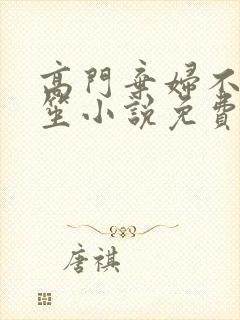 高門棄婦不
笙小說免費
唐祺